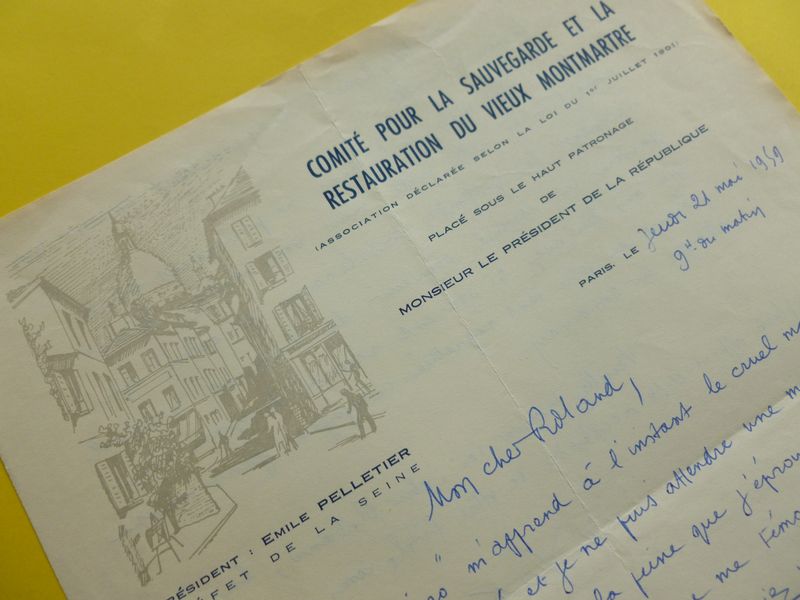 COMITÉ POUR LA SAUVEGARDE ET LA
RESTAURATION DU VIEUX MONTMARTRE
(ASSOCIATION DÉCLARÉE SELON LA LOI DU 1er JUILLET 1901)
PLACÉ SOUS LE HAUT PATRONAGE
DE
MONSIEUR LE PRÉSIDENT DE LA RÉPUBLIQUE
PARIS, LE Jeudi 21 mai 1959
9h du matin
PRÉSIDENT : EMILE PELLETIER
PRÉFET DE LA SEINE
Mon cher Roland,
m'apprend à l'instant le cruel
et je ne puis attendre une
la peine que j'éprou
me